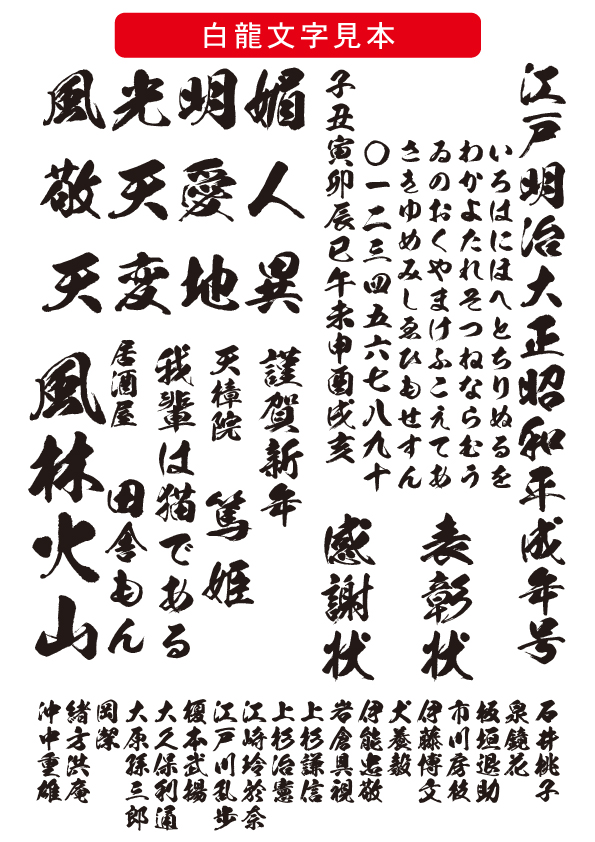 白龍文字見本
江戸明治大正昭和平成年号
いろはにほへとちりぬるを
わかよたれそつねならむう
ゐのおくやまけふこえてあ
さきゆめみしゑひもせすん
〇一二三四五六七八九十
子丑寅卯辰巳午未申酉戌亥
表彰状
感謝状
媚人異
明愛地
光天変
風敬天
謹賀新年
天樟院 篤姫
我輩は猫である
居酒屋 田舎もん
風林火山
石井桃子
泉鏡花
板垣退助
市川房枝
伊藤博文
犬養毅
伊能忠敬
岩倉具視
上杉謙信
上杉治憲
江崎玲於奈
江戸川乱歩
榎本武揚
大久保利通
大原孫三郎
岡潔
緒方洪庵
沖中重雄